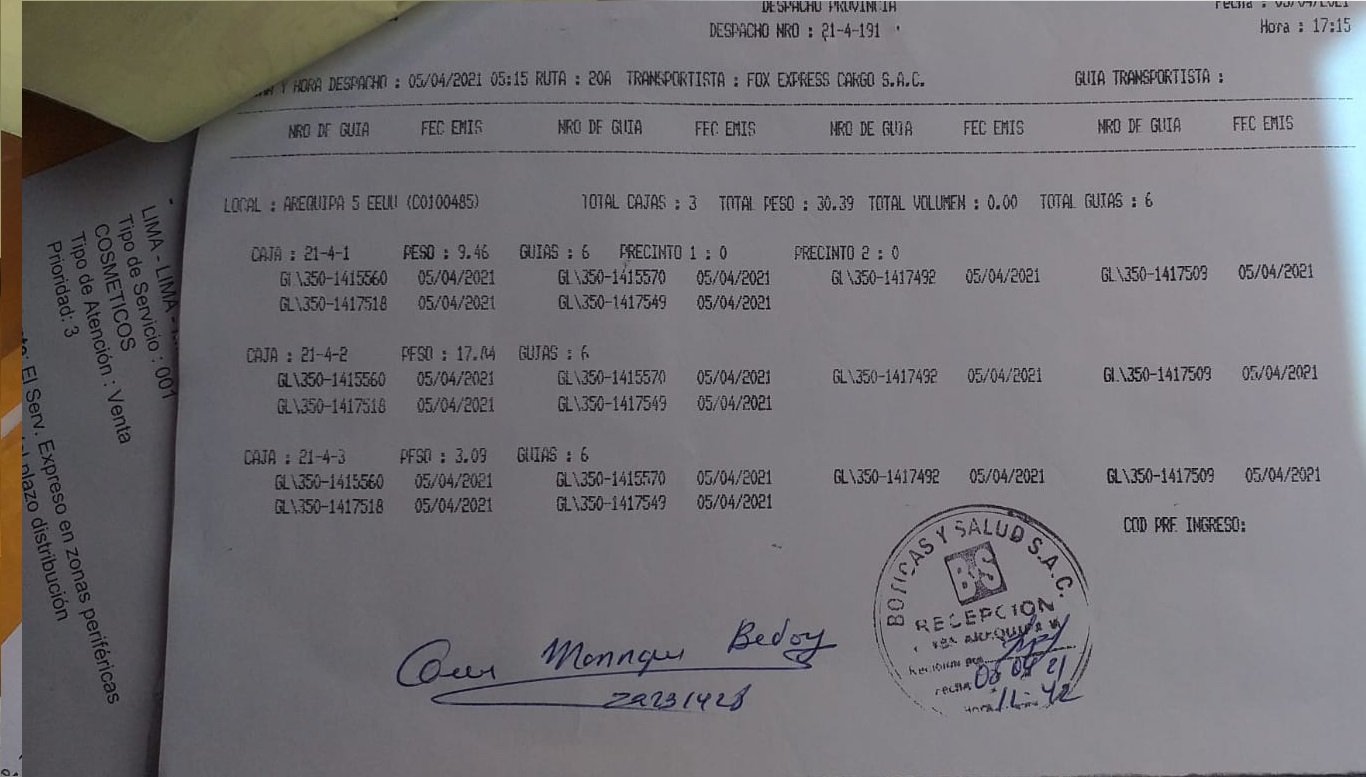 DESPACHO PROVINCIA
DESPACHO NRO : 21-4-191
Fecha : 05/04/2021
Hora : 17:15
Y HORA DESPACHO : 05/04/2021 05:15 RUTA : 20A TRANSPORTISTA : FOX EXPRESS CARGO S.A.C. GUIA TRANSPORTISTA :
NRO DE GUIA FEC EMIS NRO DE GUIA FEC EMIS NRO DE GUIA FEC EMIS NRO DE GUIA FEC EMIS
LOCAL : AREQUIPA 5 EEUU (C0100485) TOTAL CAJAS : 3 TOTAL PESO : 30.39 TOTAL VOLUMEN : 0.00 TOTAL GUIAS : 6
CAJA : 21-4-1 PESO : 9.46 GUIAS : 6 PRECINTO 1 : 0 PRECINTO 2 : 0
GL\350-1415560 05/04/2021 GL\350-1415570 05/04/2021 GL\350-1417492 05/04/2021 GL\350-1417509 05/04/2021
GL\350-1417518 05/04/2021 GL\350-1417549 05/04/2021
CAJA : 21-4-2 PESO : 17.84 GUIAS : 6
GL\350-1415560 05/04/2021 GL\350-1415570 05/04/2021 GL\350-1417492 05/04/2021 GL\350-1417509 05/04/2021
GL\350-1417518 05/04/2021 GL\350-1417549 05/04/2021
CAJA : 21-4-3 PESO : 3.09 GUIAS : 6
GL\350-1415560 05/04/2021 GL\350-1415570 05/04/2021 GL\350-1417492 05/04/2021 GL\350-1417509 05/04/2021
GL\350-1417518 05/04/2021 GL\350-1417549 05/04/2021
COD PRE INGRESO:
BOTICAS Y SALUD S.A.C.
BS
RECEPCION
AREQUIPA
Recibido por
Fecha 21
Hora 11:42
Bedoy
29231428
LIMA - LIMA -
Tipo de Servicio : 001
COSMETICOS
Tipo de Atención : Venta
Prioridad: 3
El Serv. Expreso en zonas periféricas
plazo distribución